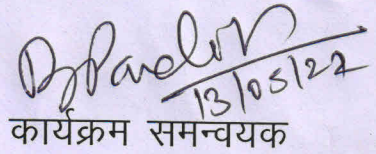 13/05/22
कार्यक्रम समन्वयक